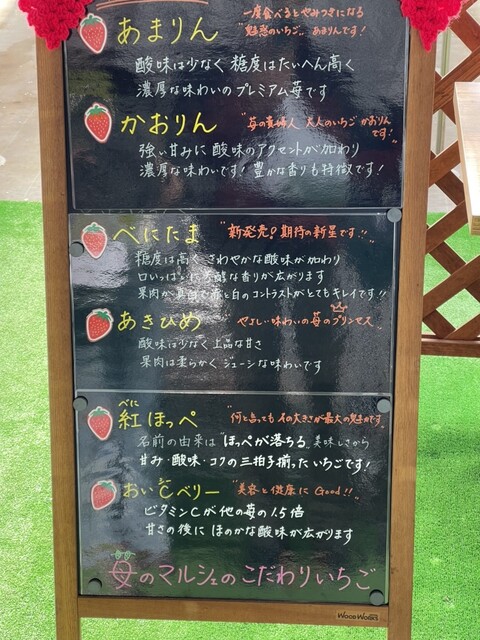 あまりん
一度食べるとやみつきになる
魅惑のいちご、あまりんです!
酸味は少なく 糖度はたいへん高く
濃厚な味わいの プレミアム苺です
かおりん
苺の貴婦人 大人のいちご かおりん
です!
強い甘みに 酸味のアクセントが加わり
濃厚な味わいです! 豊かな香りも特徴です!
べにたま
"新発売! 期待の新星です!!"
糖度は高く さわやかな酸味が加わり
口いっぱいに 芳醇な香りが広がります
果肉が真白で 赤と白のコントラストがとてもキレイです!!
あきひめ
やさしい味わいの苺のプリンセス
酸味は少なく上品な甘さ
果肉は柔らかく ジューシーな味わいです
べに
紅ほっぺ
"何と言っても その大きさが最大の魅力です
名前の由来は "ほっぺが落ちる" 美味しさから
甘み・酸味・コクの三拍子揃ったいちごです!
おいCベリー
シー
"美容と健康に Good!!"
ビタミンCが他の苺の1.5倍
甘さの後に ほのかな酸味が広がります
苺のマルシェのこだわりいちご
WOODWORKS